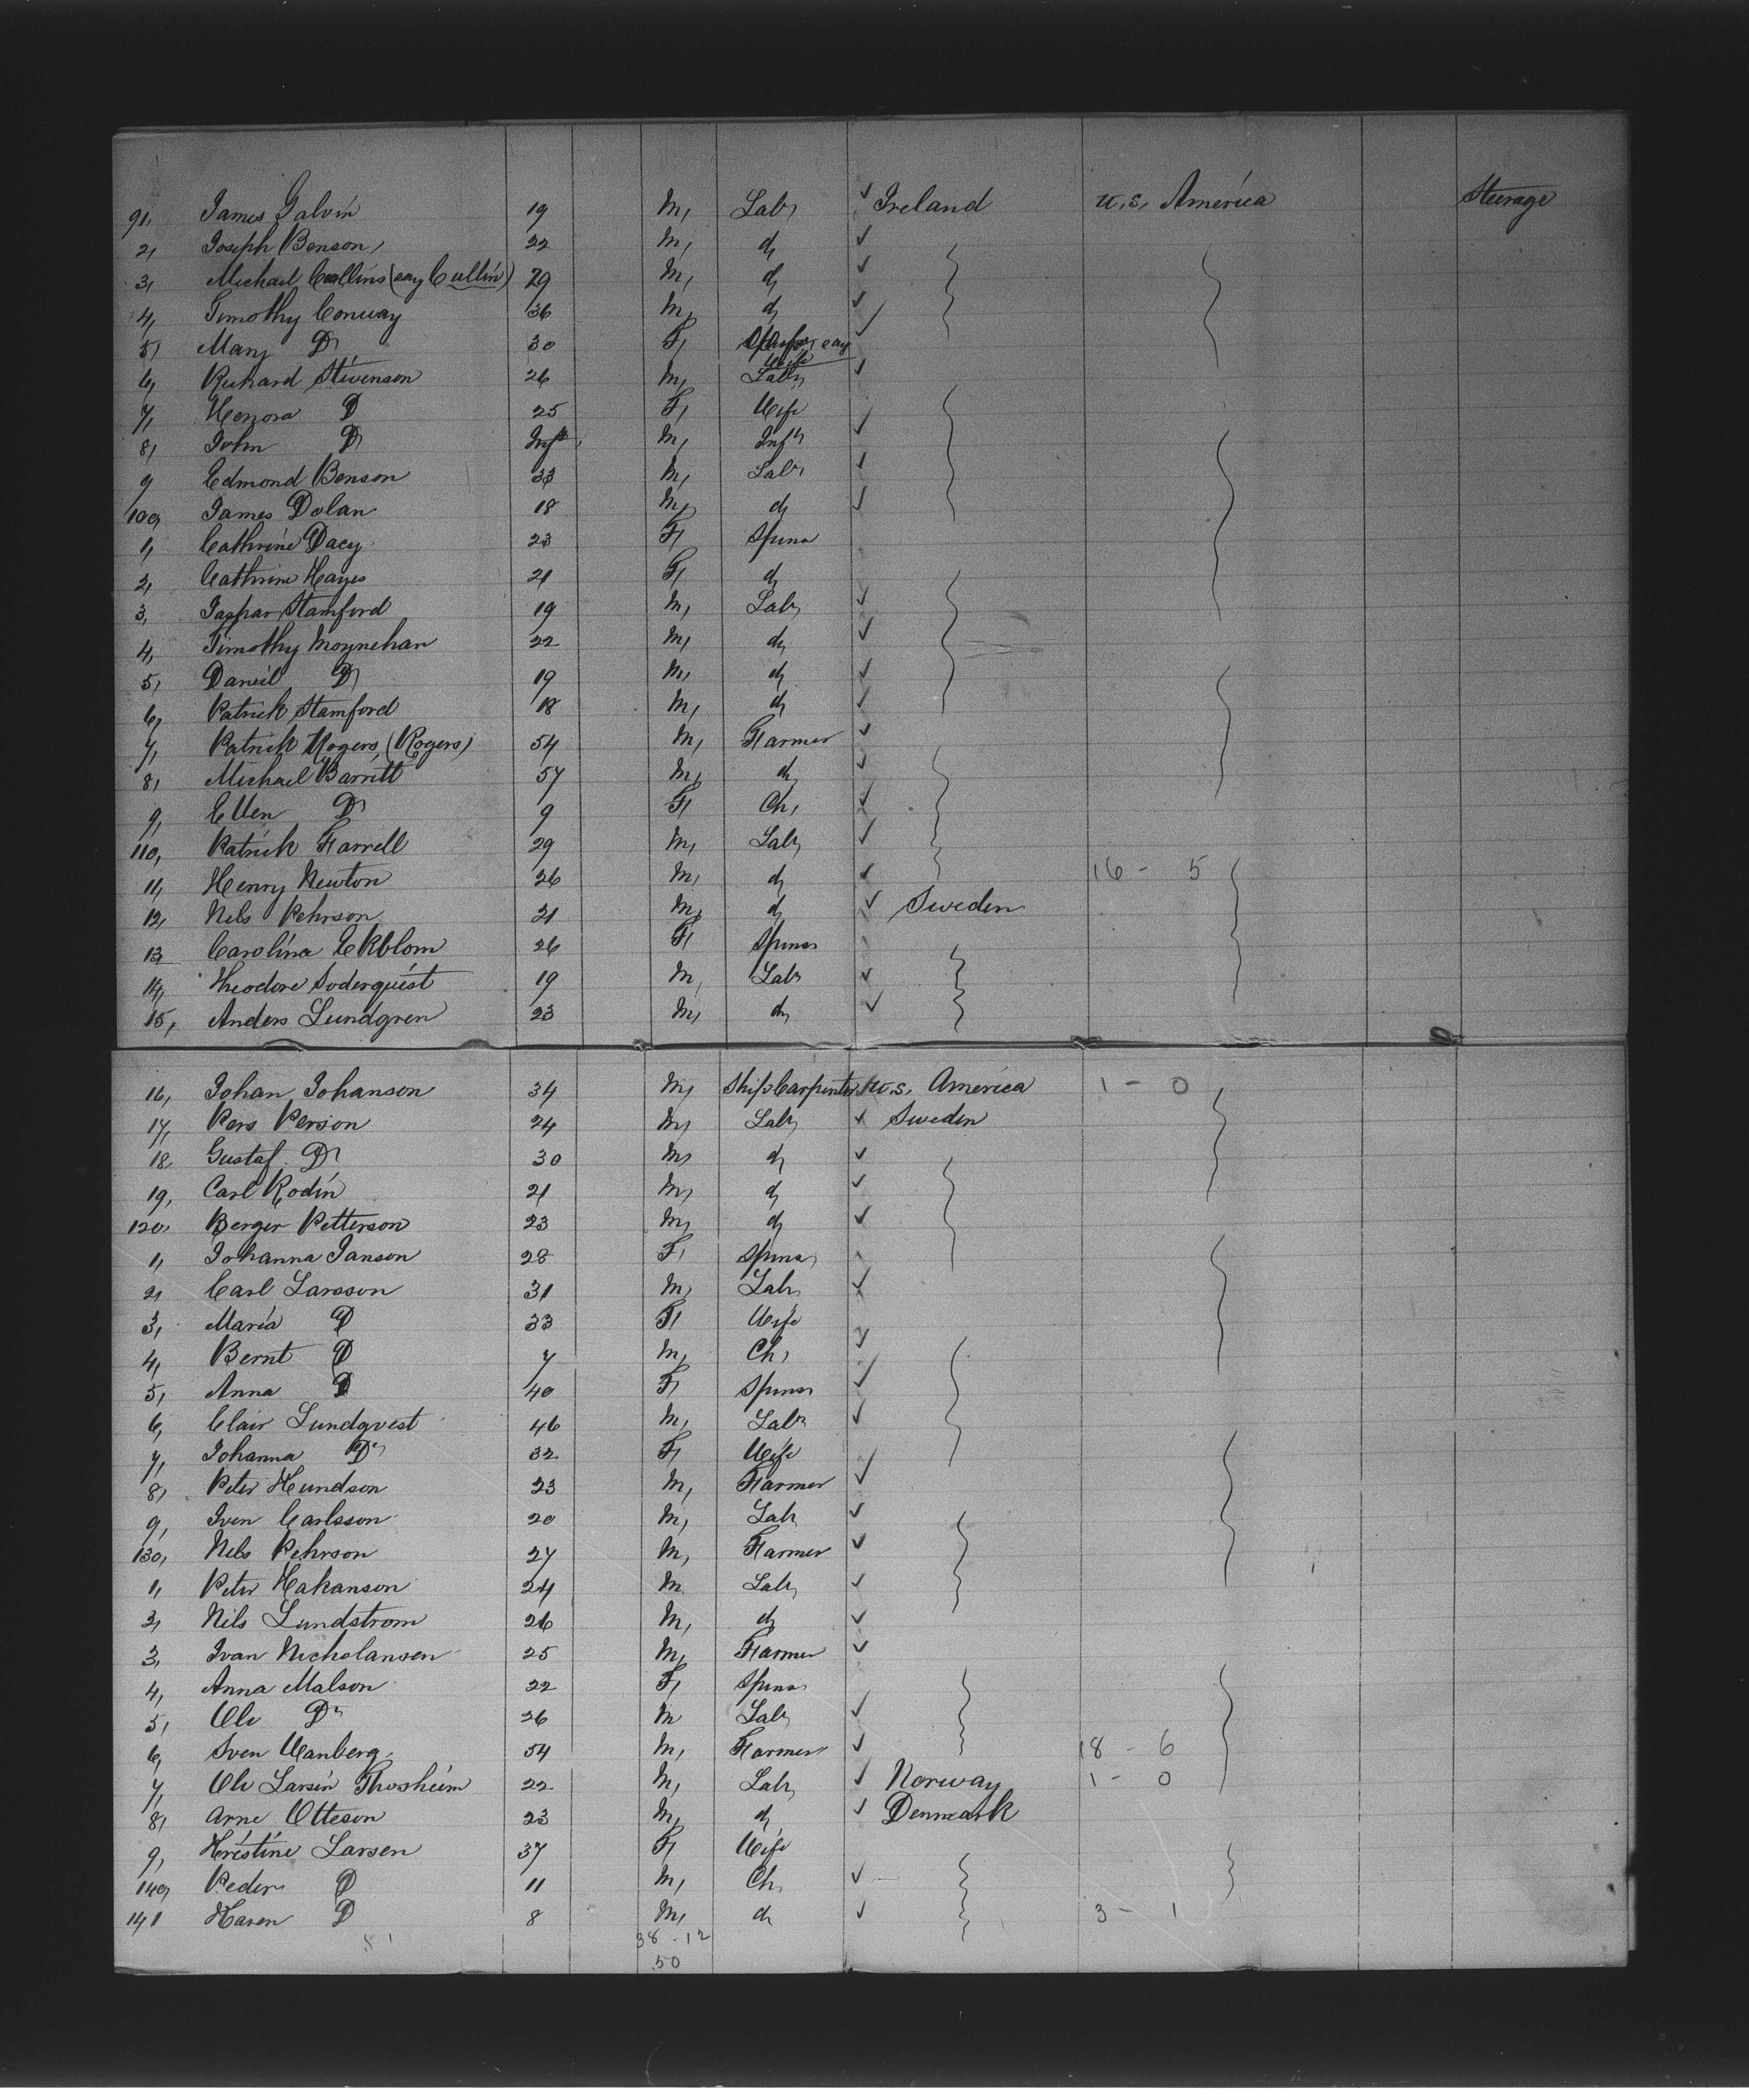 91, James Galvin 19 M, Lab, ✓ Ireland U.S. America Steerage
2, Joseph Benson, 22 M, d, ✓
3, Michael Collins (say Cullin) 29 M, d, ✓
4, Timothy Conway 36 M, d, ✓
5, Mary D, 30 F, say Wife ✓
6, Richard Stivenson 26 M, Lab, ✓
7, Honora D 25 F, Wife
8, John D, Inft, M, Inft ✓
9 Edmond Benson 33 M, Lab, ✓
100, James Dolan 18 M, d, ✓
1, Cathrine Dacy 23 F, Spins
2, Cathrine Hayes 21 F, d,
3, Jaspar Stamford 19 M, Lab, ✓
4, Timothy Moynehan 22 M, d, ✓
5, Daniel D, 19 M, d, ✓
6, Patrick Stamford 18 M, d, ✓
7, Patrick Rogers, (Rogers) 54 M, Farmer ✓
8, Michael Barrett 57 M, d, ✓
9, Ellen D, 9 F, Ch, ✓
110, Patrick Farrell 29 M, Lab, ✓
11, Henry Newton 26 M, d, ✓ 16 - 5
12, Nels Pehrson 21 M, d, ✓ Sweden
13, Carolina Ekblom 26 F, Spins
14, Theodore Soderquist 19 M, Lab, ✓
15, Anders Lundgren 23 M, d, ✓
16, Johan Johanson 34 M, Ship Carpenter U.S. America 1 - 0
17, Pers Person 24 M, Lab, ✓ Sweden
18 Gustaf D, 30 M, d, ✓
19, Carl Rodin 21 M, d, ✓
120, Berger Petterson 23 M, d, ✓
1, Johanna Janson 28 F, Spins,
2, Carl Larsson 31 M, Lab, ✓
3, Maria D 33 F, Wife
4, Bernt D 7 M, Ch, ✓
5, Anna D 40 F, Spins ✓
6, Clair Lundqvest 46 M, Lab, ✓
7, Johanna D, 32 F, Wife
8, Peter Hundson 23 M, Farmer ✓
9, Iven Carlsson 20 M, Lab, ✓
130, Nels Pehrson 27 M, Farmer ✓
1, Peter Hakanson 24 M Lab, ✓
2, Nils Lundstrom 26 M, d, ✓
3, Ivan Nicholansen 25 M, Farmer ✓
4, Anna Malson 22 F, Spins
5, Ole D, 26 M Lab, ✓
6, Sven Wanberg 54 M, Farmer ✓ 18 - 6
7, Ole Larsin Thosheim 22 M, Lab, ✓ Norway 1 - 0
8, Arne Otteson 23 M, d, ✓ Denmark
9, Kristine Larsen 37 F, Wife
140, Peder D 11 M, Ch, ✓
141 Karen D 8 M, d, ✓ 3 - 1
38 - 12
50